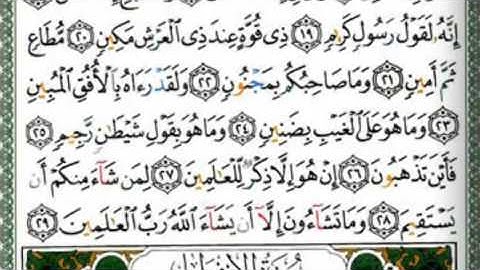 إِنَّهُۥ لَقَوۡلُ رَسُولٖ كَرِيمٖ ١٩ ذِي قُوَّةٍ عِندَ ذِي ٱلۡعَرۡشِ مَكِينٖ ٢٠ مُّطَاعٖ
ثَمَّ أَمِينٖ ٢١ وَمَا صَاحِبُكُم بِمَجۡنُونٖ ٢٢ وَلَقَدۡ رَءَاهُ بِٱلۡأُفُقِ ٱلۡمُبِينِ
٢٣ وَمَا هُوَ عَلَى ٱلۡغَيۡبِ بِضَنِينٖ ٢٤ وَمَا هُوَ بِقَوۡلِ شَيۡطَٰنٖ رَّجِيمٖ ٢٥
فَأَيۡنَ تَذۡهَبُونَ ٢٦ إِنۡ هُوَ إِلَّا ذِكۡرٞ لِّلۡعَٰلَمِينَ ٢٧ لِمَن شَآءَ مِنكُمۡ أَن
يَسۡتَقِيمَ ٢٨ وَمَا تَشَآءُونَ إِلَّآ أَن يَشَآءَ ٱللَّهُ رَبُّ ٱلۡعَٰلَمِينَ ٢٩